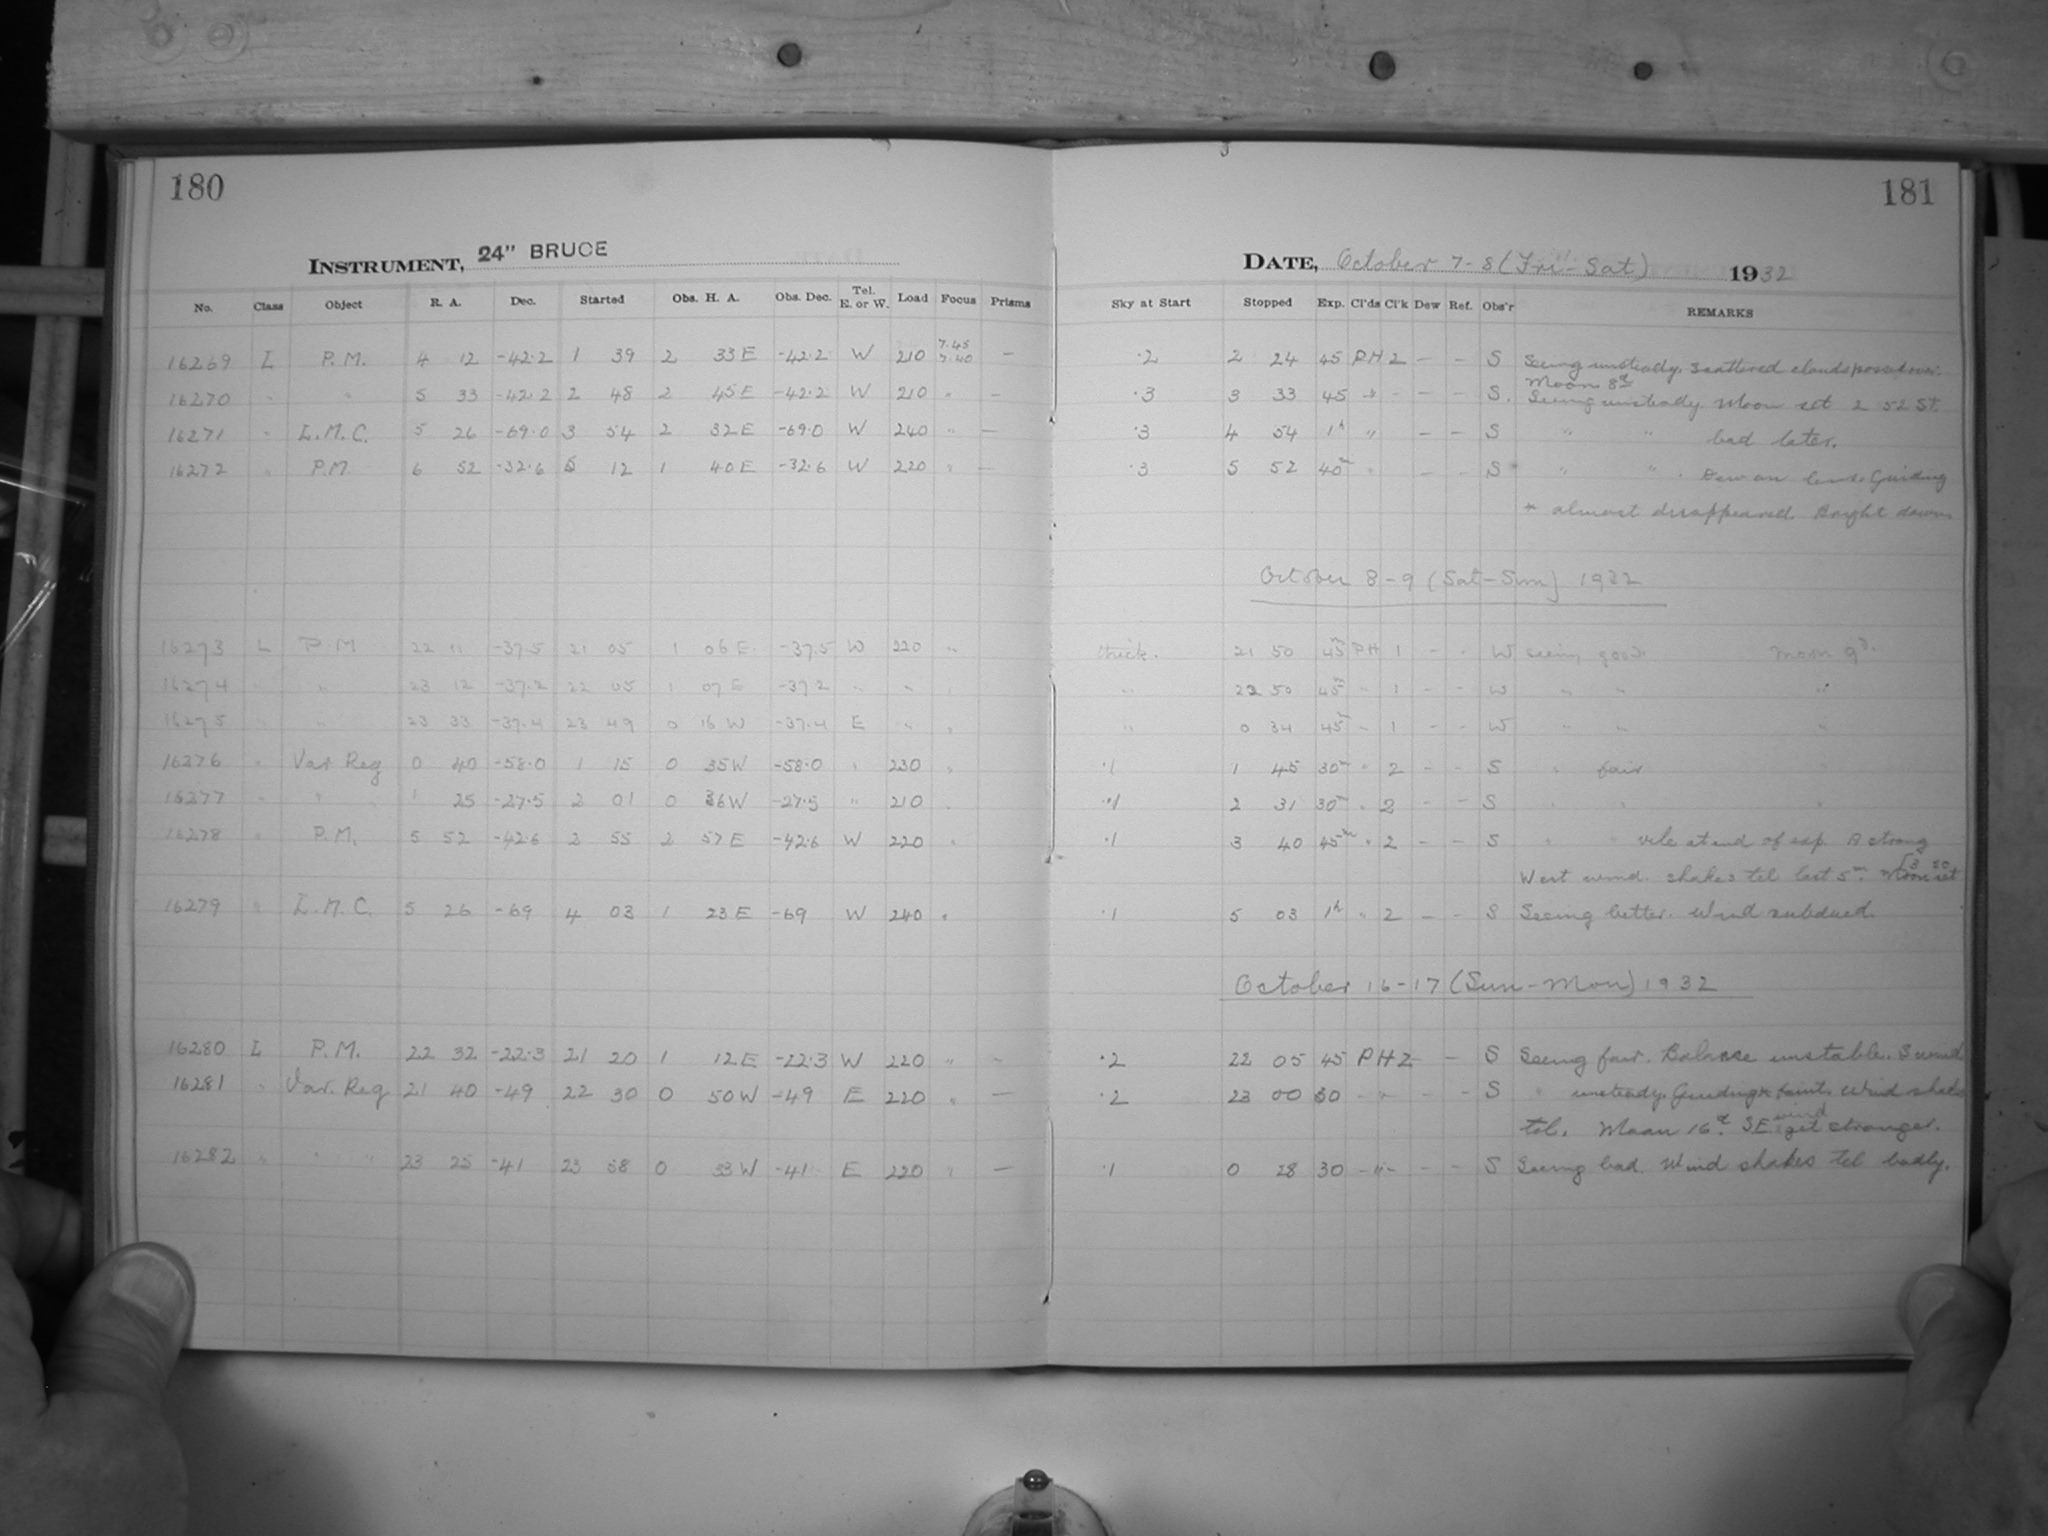 180
181
INSTRUMENT, 24" BRUCE
DATE, October 7-8 (Fri-Sat) 1932
No. Class Object R. A. Dec. Started Obs. H. A. Obs. Dec. Tel. E. or W. Load Focus Prisms Sky at Start Stopped Exp. Cl'ds Cl'k Dew Ref. Obs'r REMARKS
16269 L P.M. 4 12 -42.2 1 39 2 33 E -42.2 W 210 7.45 7.40 — .2 2 24 45 PH 2 — - S Seeing unsteady. Scattered clouds passed over. Moon 8d
16270 " " 5 33 -42.2 2 48 2 45 E -42.2 W 210 " — .3 3 33 45 " - — - S. Seeing unsteady. Moon set 2 52 ST.
16271 " L.M.C. 5 26 -69.0 3 54 2 32 E -69.0 W 240 " — .3 4 54 1h " — — S " " bad later.
16272 " P.M. 6 52 -32.6 5 12 1 40 E -32.6 W 220 " — .3 5 52 40m " — — S* " " . Dew on lens. Guiding
* almost disappeared. Bright dawn
October 8-9 (Sat-Sun) 1932
16273 L P M 22 11 -37.5 21 05 1 06 E. -37.5 W 220 " thick. 21 50 45m PH 1 - - W seeing good. Moon 9d.
16274 " " 23 12 -37.2 22 05 1 07 E -37.2 " " " " 22 50 45m " 1 - - W " " "
16275 " " 23 33 -37.4 23 49 0 16 W -37.4 E " " " 0 34 45m " 1 - - W " " "
16276 " Var Reg 0 40 -58.0 1 15 0 35 W -58.0 " 230 " .1 1 45 30m " 2 - - S " fair "
16277 " " 1 25 -27.5 2 01 0 36 W -27.5 " 210 " .1 2 31 30m " 2 - - S " " "
16278 " P.M. 5 52 -42.6 2 55 2 57 E -42.6 W 220 " .1 3 40 45m " 2 - - S " " vile at end of exp. A strong
West wind. shakes tel last 5m. Moon set [3 50
16279 " L.M.C. 5 26 -69 4 03 1 23 E -69 W 240 " .1 5 03 1h " 2 - - S Seeing better. Wind subdued.
October 16-17 (Sun-Mon) 1932
16280 L P.M. 22 32 -22.3 21 20 1 12 E -22.3 W 220 " - .2 22 05 45 PH 2 - - S Seeing fair. Balance unstable. S wind
16281 " Var. Reg 21 40 -49 22 30 0 50 W -49 E 220 " — .2 23 00 30 - " - - S " unsteady. Guiding * faint. Wind shakes
tel. Moon 16d. SE wind get stronger.
16282 " " " 23 25 -41 23 58 0 33 W -41 E 220 " — .1 0 28 30 - " - - S Seeing bad. Wind shakes tel badly.